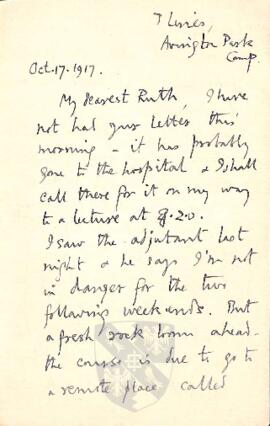 T Lines,
Avington Park
Camp.
Oct. 17. 1917.
My dearest Ruth, I have
not had your letter this
morning – it has probably
gone to the hospital & I shall
call there for it on my way
to a lecture at 2.0.
I saw the adjutant last
night & he says I'm not
in danger for the two
following weekends. But
a fresh rock looms ahead –
the course is due to go to
a remote place called